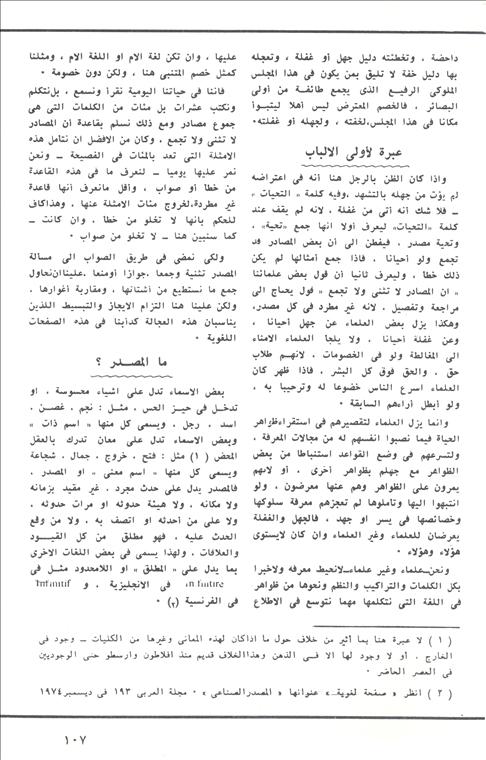 داحضة ، وتخطئته دليل جهل أو غفلة ، وتعجله
بها دليل خفة لا تليق بمن يكون فى هذا المجلس
الملوكى الرفيع الذى يجمع طائفة من أولى
البصائر ، فالخصم المعترض ليس أهلا ليتبوأ
مكانا فى هذا المجلس،لخفته ، ولجهله أو غفلته٠
عبرة لأولى الالباب
واذا كان الظن بالرجل هنا أنه فى اعتراضه
لم يؤت من جهله بالتشهد ،وفيه كلمة « التحيات »
ــ فلا شك أنه أتى من غفلة ، لانه لم يقف عند
كلمة «التحيات» ليعرف أولا انها جمع «تحية» ،
وتحية مصدر ، فيفطن الى أن بعض المصادر قد
تجمع ولو أحيانا ، فاذا جمع أمثالها لم يكن
ذلك خطأ ، وليعرف ثانيا أن قول بعض علمائنا
« ان المصادر لا تثنى ولا تجمع » قول يحتاج الى
مراجعة وتفصيل ، لانه غير مطرد فى كل مصدر،
وهكذا يزل بعض العلماء عن جهل أحيانا ،
وعن غفلة أحيانا ، ولا يلجأ العلماء الامناء
الى المغالطة ولو فى الخصومات ، لانهم طلاب
حق ، والحق فوق كل البشر ، فاذا ظهر كان
العلماء أسرع الناس خضوعا له وترحيبا به ،
ولو أبطل أراءهم السابقة ٠
وانما يزل العلماء لتقصيرهم فى استقراءظواهر
الحياة فيما نصبوا أنفسهم له من مجالات المعرفة ،
ولتسرعهم فى وضع القواعد استنباطا من بعض
الظواهر مع جهلهم بظواهر أخرى ، أو لانهم
يمرون على الظواهر وهم عنها معرضون ، ولو
انتبهوا اليها وتأملوها لم تعجزهم معرفة سلوكها
وخصائصها فى يسر أو جهد ، فالجهل والغفلة
يعرضان للعلماء وغير العلماء وان كان لايستوى
هؤلاء وهؤلاء ٠
ونحن_علماء وغير علماء_لانحيط معرفه ولاخبرا
بكل الكلمات والتراكيب والنظم ونحوها من ظواهر
فى اللغة التى نتكلمها مهما نتوسع فى الاطلاع
عليها ، وان تكن لغة الام او اللغة الام ، ومثلنا
كمثل خصم المتنبى هنا ، ولكن دون خصومة ٠
فاننا فى حياتنا اليومية نقرأ ونسمع ، بل نتكلم
ونكتب عشرات بل مئات من الكلمات التى هى
جموع مصادر ومع ذلك نسلم بقاعدة أن المصادر
لا تثنى ولا تجمع ، وكان من الافضل ان نتأمل هذه
الامثلة التى تعد بالمئات فى الفصيحة ــ ونحن
نمر عليها يوميا ــ لنعرف ما فى هذه القاعدة
من خطأ أو صواب ، وأقل مانعرف أنها قاعدة
غير مطردة،لخروج مئات الامثلة عنها ، وهذاكاف
للحكم بأنها لا تخلو من خطأ ، وان كانت ــ
كما سنبين هنا ــ لا تخلو من صواب ٠
ولكى نمضى فى طريق الصواب الى مسالة
المصدر تثنية وجمعا ،جوازا أومنعا ،عليناأن نحاول
جمع ما نستطيع من أشتاتها ، ومقاربة أغوارها ،
ولكن علينا هنا التزام الايجاز والتبسيط اللذين
يناسبان هذه العجالة كدأبنا فى هذه الصفحات
اللغوية ٠
ما المصدر ؟
بعض الاسماء تدل على أشياء محسوسة ، أو
تدخل فى حيز الحس ، مثل : نجم ، غصن ،
أسد ، رجل ، ويسمى كل منها « اسم ذات »
وبعض الاسماء تدل على معان تدرك بالعقل
المحض (١) مثل : فتح ، خروج ، جمال ، شجاعة
ويسمى كل منها « اسم معنى » أو المصدر ،
فالمصدر يدل على حدث مجرد ، غير مقيد بزمانه
ولا مكانه ، ولا هيئة حدوثه أو مرات حدوثه ،
ولا على من أحدثه أو اتصف به ، ولا من وقع
الحدث عليه ، فهو مطلق من كل القيود
والعلاقات ، ولهذا يسمى فى بعض اللغات الاخرى
بما يدل على « المطلق » أو اللامحدود مثل فى
in finitre فى الانجليزية ، و Infinitif
فى الفرنسية (٢) ٠
( ١ ) لا عبرة هنا بما أثير من خلاف حول ما اذاكان لهذه المعانى وغيرها من الكليات ــ وجود فى
الخارج ، أو لا وجود لها الا فى الذهن وهذاالخلاف قديم منذ افلاطون وارسطو حتى الوجوديين
فى العصر الحاضر ٠
( ٢ ) انظر « صفحة لغوية_» عنوانها « المصدرالصناعى » ٠ مجلة العربى ١٩٣ فى ديسمبر١٩٧٤
١٠٧